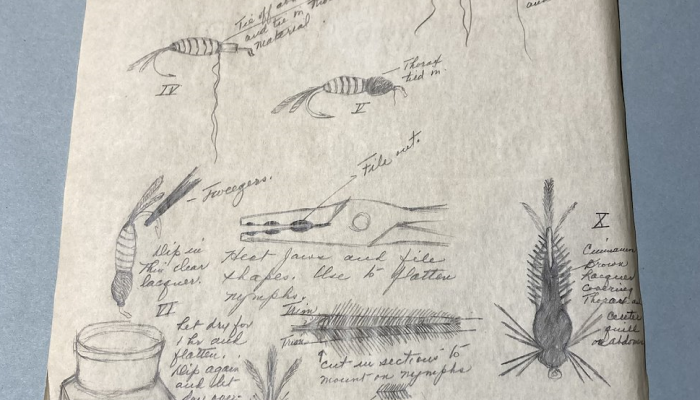 Tie off
and tie in
material
IV
Thorax
tied in
V
Tweezers.
File out.
X
Dip in
thin clear
lacquer.
VI
Heat Jaws and file
shapes. Use to flatten
nymphs.
Cinnamon
Brown
Lacquer
covering
Thorax and
Center
quill
on abdomen
Trim
Trim
Let dry for
1 hr and
flatten.
Dip again
and let
dry
"cut in sections" to
mount on nymphs